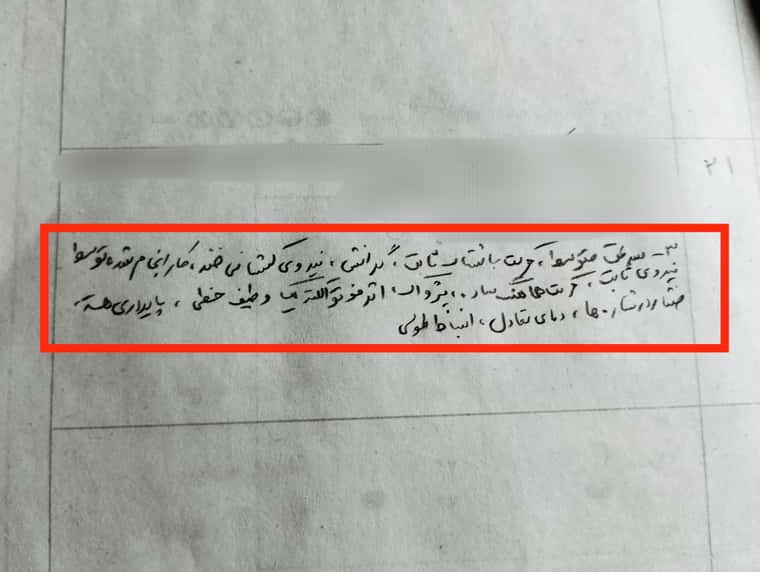 ۲۱
۳- سرعت متوسط، حرکت با شتاب ثابت، گرانش، نیروی کشسانی فنر، کار انجام شده توسط
نیروی ثابت، حرکت هماهنگ ساده، پژواک، اثر فوتوالکتریک و طیف خطی، پایداری هسته
فشار در شاره‌ها، دمای تعادل، انبساط طولی